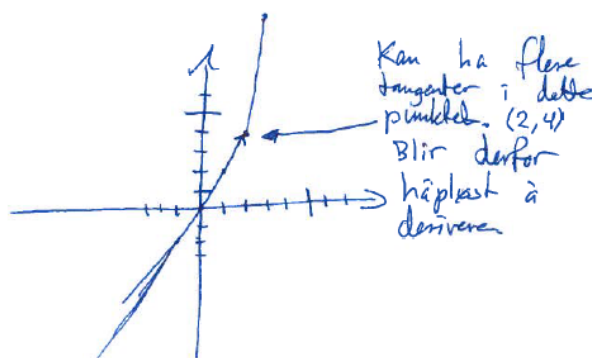 Kan ha flere
tangenter i dette
punktet. (2,4)
Blir derfor
håpløst å
derivere